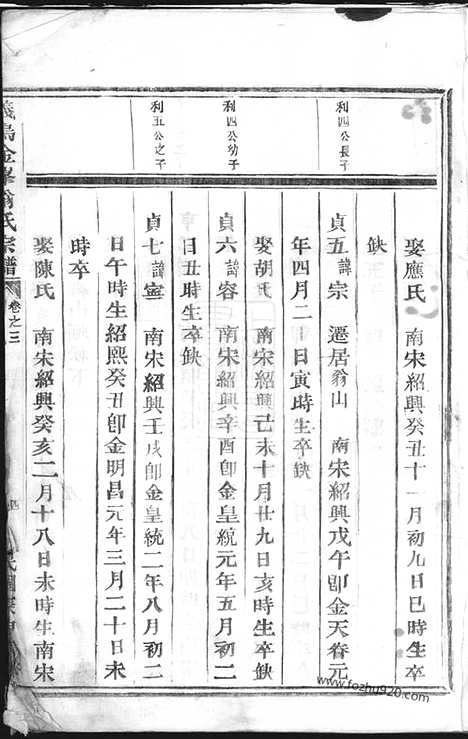 利四公長子
利四公幼子
利五公之子
娶應氏 南宋紹興癸丑十一月初九日巳時生卒
缺
貞五諱宗 遷居翁山 南宋紹興戊午卽金天眷元
年四月二十日寅時生卒缺
娶胡氏 南宋紹興己未十月廿九日亥時生卒缺
貞六諱容 南宋紹興辛酉卽金皇統元年五月初二
日丑時生卒缺
貞七諱寧 南宋紹興壬戌卽金皇統二年八月初二
日午時生紹熙癸丑卽金明昌元年三月二十日未
時卒
娶陳氏 南宋紹興癸亥二月十八日未時生南宋
義烏金峯俞氏宗譜
卷之三
www.fozhu920.com